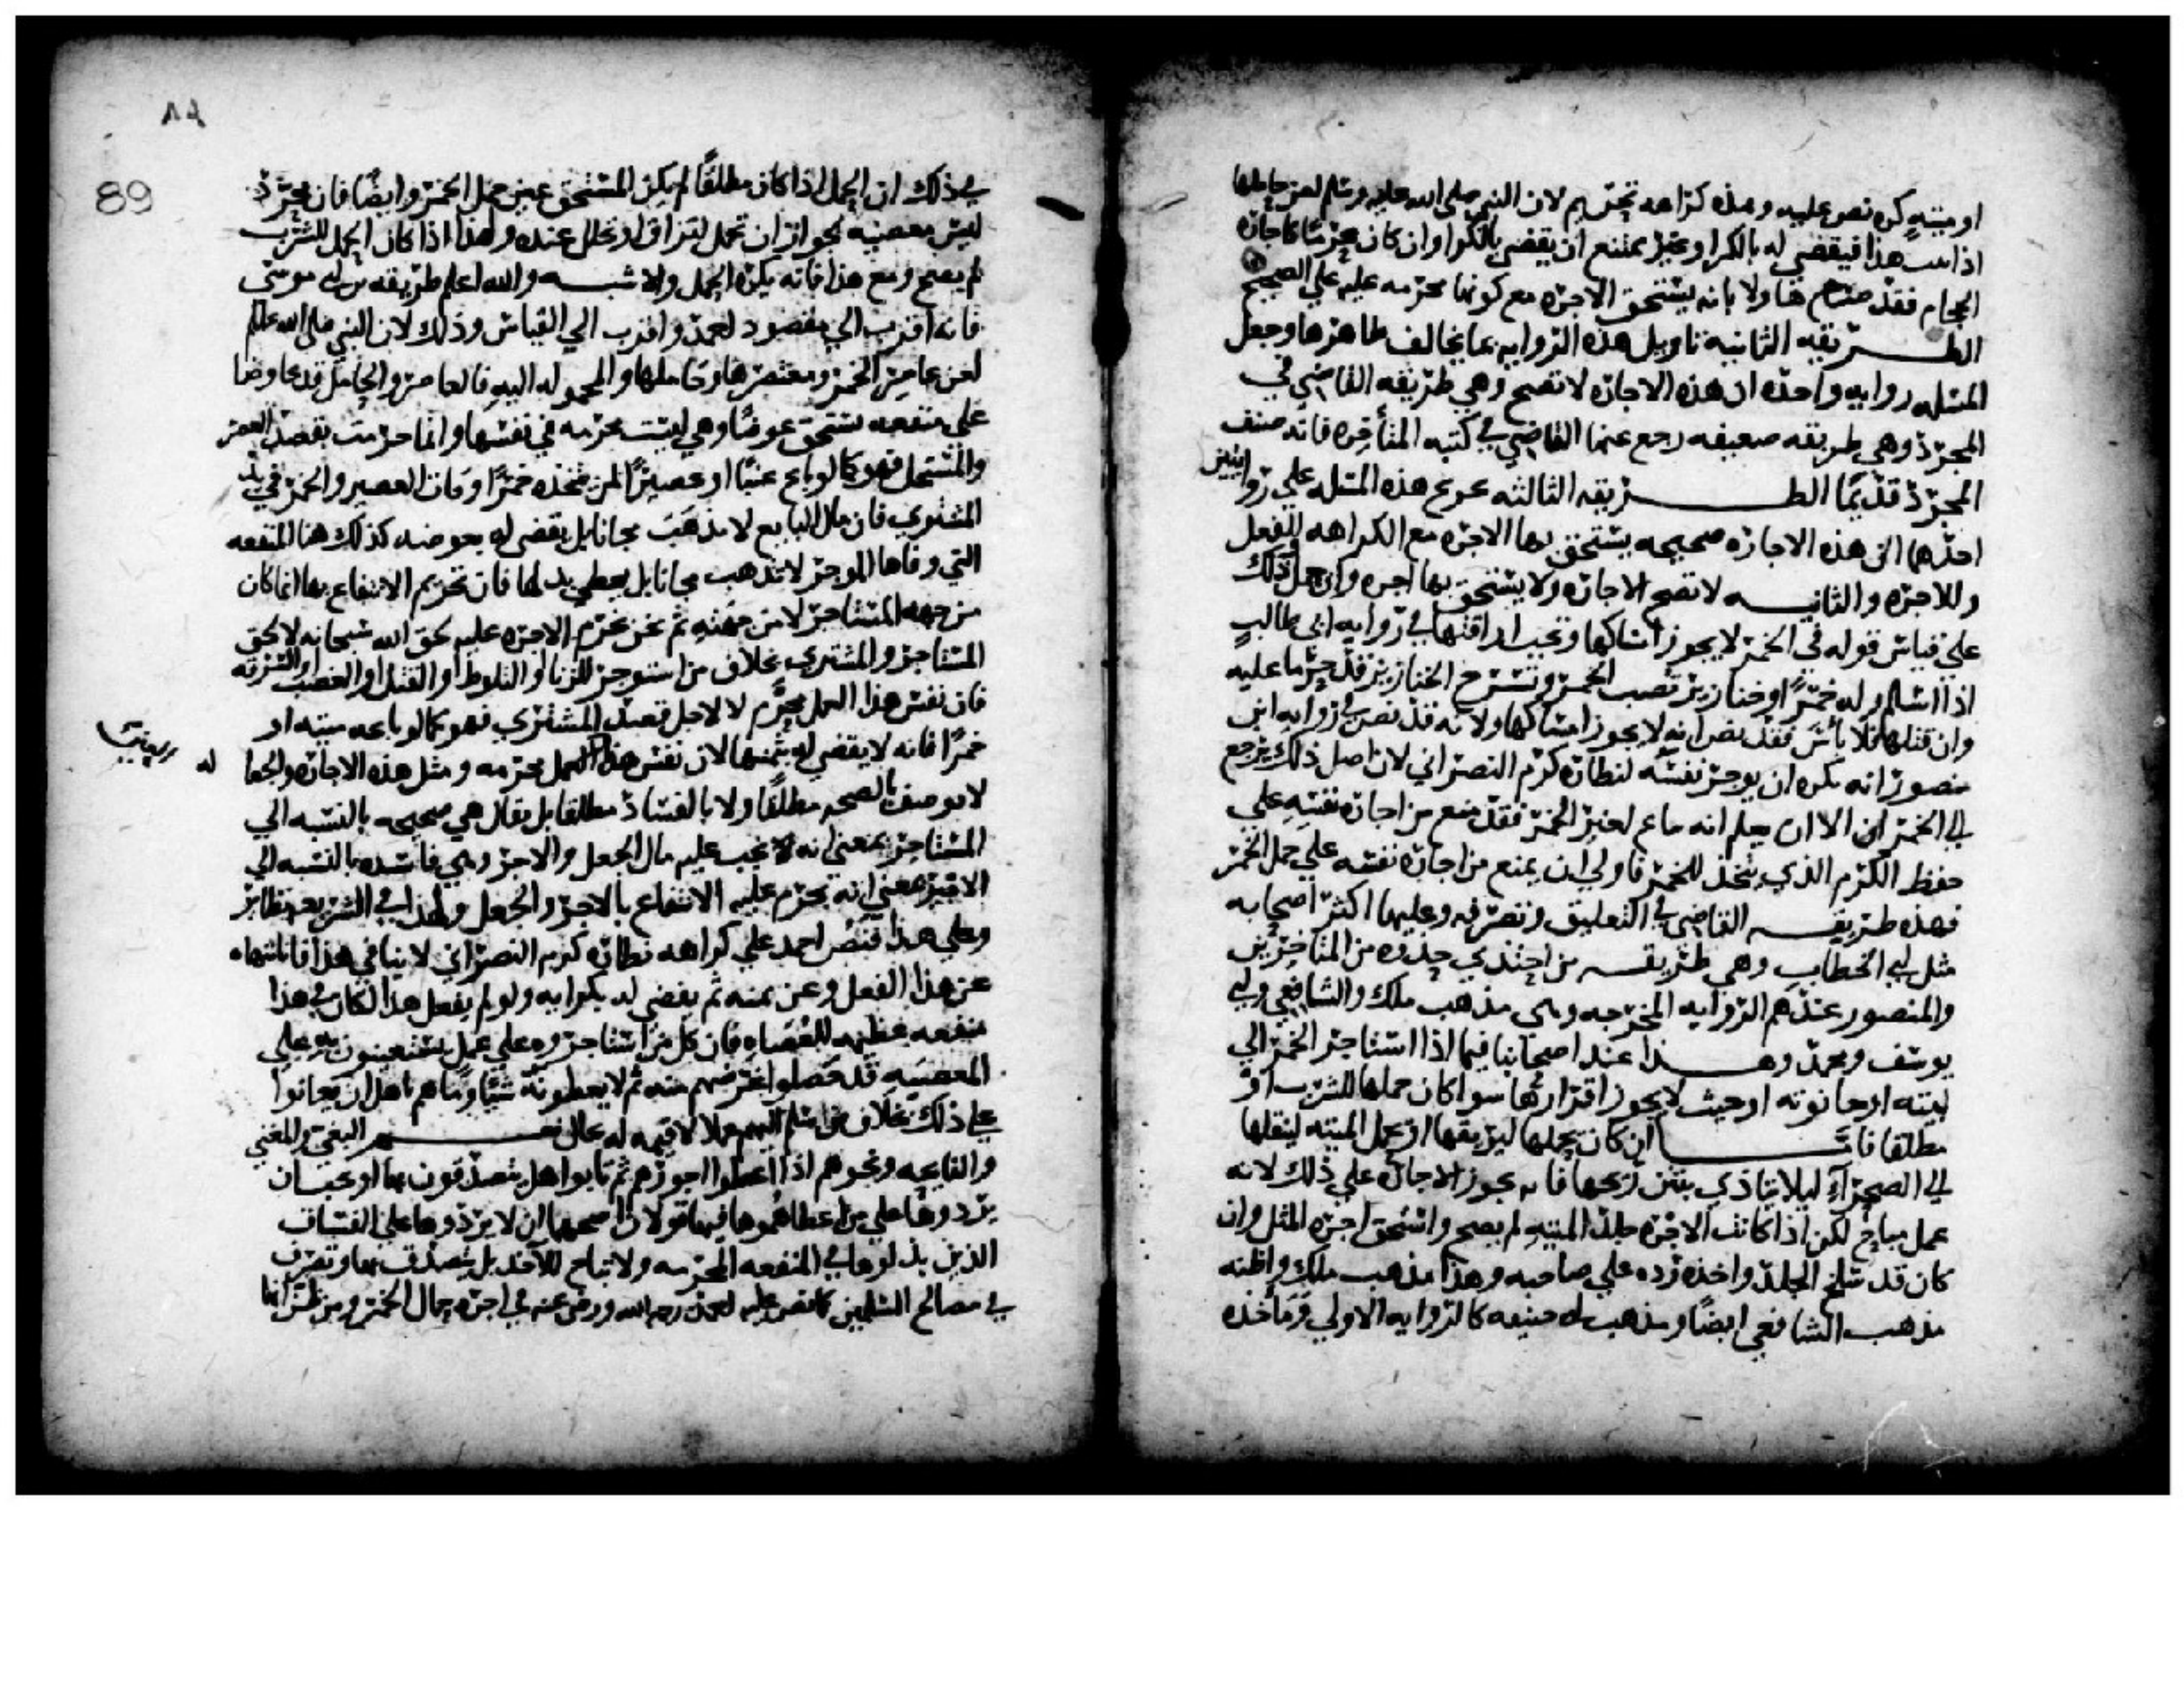 او ميتهٍ كره نص عليه وهذه كراهه تحريم لان النبي صلى الله عليه وسلم لعن حاملها
اذا ثبت هذا فيقضي له بالكرا وغير ممتنع ان يقضي بالكرا وان كان محرما كاجارة
الحجام فقد صرح هاولا بانه يستحق الاجره مع كونها محرمه عليه علي الصحيح
الطريقه الثانيه تاويل هذه الروايه بما يخالف ظاهرها وجعل
المسله روايه واحده ان هذه الاجاره لا تصح وهي طريقه القاضي في
المجرد وهي طريقه ضعيفه رجع عنها القاضي في كتبه المتأخره فانه صنف
المجرد قديمًا الطريقه الثالثه تخريج هذه المسله علي روايتين
احدهما ان هذه الاجاره صحيحه يستحق بها الاجره مع الكراهه للفعل
وللاجره والثانيه لا تصح الاجاره ولا يستحق بها اجره وان حمل ذلك
علي قياس قوله في الخمر لا يجوز امساكها وتجب اراقتها في روايه ابي طالب
اذا اسلم وله خمرًا او خنازير تصب الخمر وتسرح الخنازير قد حرما عليه
وان قتلها فلا بأس فقد نص انه لا يجوز امساكها ولانه قد نص في روايه ابي
منصور انه يكره ان يوجر نفسه لنطاره كرم النصراني لان اصل ذلك يرجع
الي الخمر الا ان يعلم انه يباع لغير الخمر فقد منع من اجارة نفسه علي
حفظ الكرم الذي يتخذ للخمر فاولي ان يمنع من اجاره نفسه علي حمل الخمر
فهذه طريقه القاضي في التعليق وتصرفه وعليها اكثر اصحابه
مثل ابي الخطاب وهي طريقه من احتذي حذوه من المتاخرين
والمنصور عندهم الروايه المخرجه وهي مذهب ملك والشافعي وابي
يوسف ومحمد وهذا عند اصحابنا فيما اذا استاجر الخمر الي
بيته او حانوته او حيث لا يجوز اقرارها سوا كان حملها للشرب او
مطلقا فاما ان كان يحملها ليريقها او يحمل الميته لينقلها
الي الصحرآءِ ليلا يتاذي بنتن ريحها فانه يجوز الاجاره علي ذلك لانه
عمل مباح لكن اذا كانت الاجره جلد الميتهِ لم يصح واستحق اجره المثل وان
كان قد سلخ الجلد واخذه رده علي صاحبه وهذا مذهب ملك واظنه
مذهب الشافعي ايضًا ومذهب ابي حنيفه كالروايه الاولي ومأخذه
٨٩
89
في ذلك ان الحمل اذا كان مطلقًا لم يكن المستحق عين حمل الخمر وايضًا فان مجرد
ليس معصيه لجواز ان تحمل لتراق او تخلل عنده ولهذا اذا كان الحمل للشرب
لم يصح ومع هذا فانه يكره الحمل والاشبه والله اعلم طريقه بن ابي موسى
فانه اقرب الي مقصود احمد واقرب الي القياس وذلك لان النبي صلى الله عليه
لعن عاصر الخمر ومعتصرها وحاملها والمحموله اليه فالعاصر والحامل قد عاوضا
على منفعه تستحق عوضًا وهي ليست محرمه في نفسها وانما حرمت بقصد المعتصر
والمستحمل فهو كما لو باع عنبًا او عصيرًا لمن يتخذه خمرًا وفات العصير والخمر في يد
المشتري فان مال البايع لا يذهب مجانا بل يقضى له بعوضه كذلك هنا المنفعه
التي وفاها الموجر لا تذهب مجانا بل يعطي بدلها فان تحريم الانتفاع بها انما كان
من جهه المستاجر لا من جهته ثم نحن نحرم الاجره عليه لحق الله سبحانه لا لحق
المستاجر والمشتري بخلاف من استوجر للزنا او التلوط او القتل او الغصب او السرقه
فان نفس هذا العمل محرم لا لاجل قصد المشتري فهو كما لو باعه ميته او
خمرًا فانه لا يقضي له بثمنها لان نفس هذا العمل محرمه ومثل هذه الاجاره والجعاله
لا توصف بالصحه مطلقًا ولا بالفساد مطلقا بل يقال هي صحيحه بالنسبه الي
المستاجر بمعنى انه تجب عليه مال الجعل والاجر وهي فاسده بالنسبه الي
الاجير بمعني انه يحرم عليه الانتفاع بالاجر والجعل ولهذا في الشريعه نظاير
وعلي هذا فنص احمد علي كراهه نطاره كرم النصراني لا ينافي هذا فانا ننهاه
عن هذا الفعل وعن ثمنه ثم نقضي له بكرايه ولو لم نفعل هذا لكان في هذا
منفعه عظيمه للعصاه فان كل من استاجروه علي عمل يستعينون به علي
المعصيه قد حصلوا غرضهم منه ثم لا يعطونه شيًا وما هم باهل ان يعانوا
علي ذلك بخلاف من اسلم اليهم عملا لا قيمه له بحال نعم البغي والمغني
والنايحه ونحوهم اذا اعطوا اجورهم ثم تابوا هل يتصدقون بها او يجب ان
يردوها علي من اعطاهموها فيها قولان اصحهما ان لا يردوها على الفساق
الذين بذلوها في المنفعه المحرمه ولا تباح للآخذ بل يتصدق بها وتصرف
في مصالح المسلمين كما نص عليه احمد رحمه الله ورضي عنه في اجره حمال الخمر ومن ظن انها